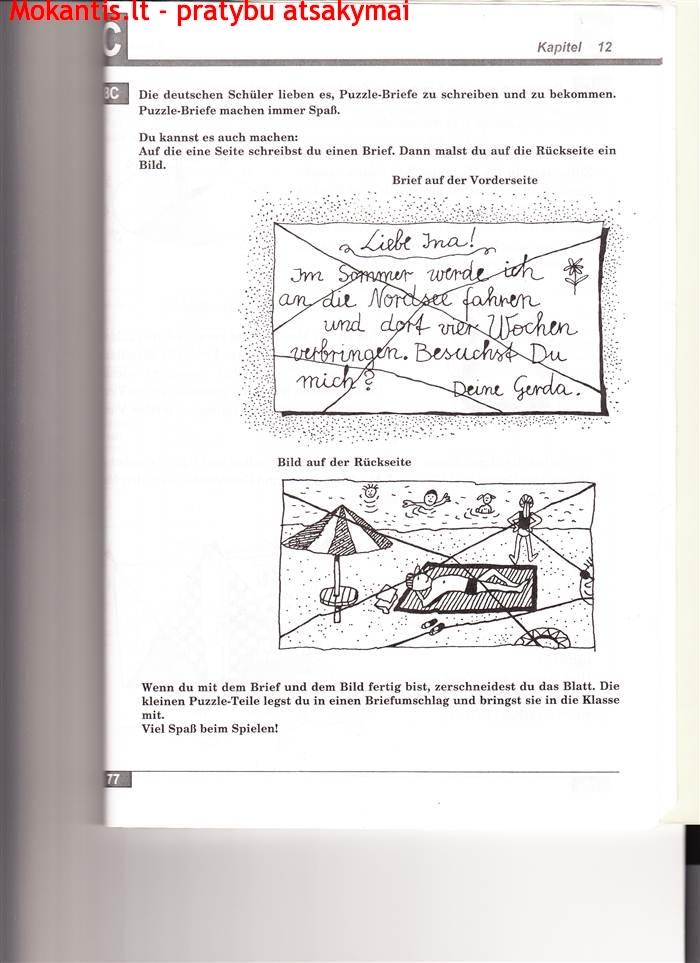 Mokantis.lt - pratybu atsakymai
C
Kapitel 12
3C
Die deutschen Schüler lieben es, Puzzle-Briefe zu schreiben und zu bekommen.
Puzzle-Briefe machen immer Spaß.
Du kannst es auch machen:
Auf die eine Seite schreibst du einen Brief. Dann malst du auf die Rückseite ein
Bild.
Brief auf der Vorderseite
Liebe Ina!
Im Sommer werde ich
an die Nordsee fahren
und dort vier Wochen
verbringen. Besuchst Du
mich?
Deine Gerda.
Bild auf der Rückseite
Wenn du mit dem Brief und dem Bild fertig bist, zerschneidest du das Blatt. Die
kleinen Puzzle-Teile legst du in einen Briefumschlag und bringst sie in die Klasse
mit.
Viel Spaß beim Spielen!
77